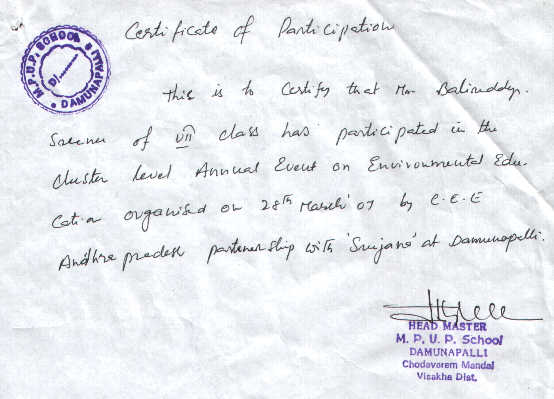 Certificate of Participation
M.P.U.P. SCHOOL
DAMUNAPALLI
This is to Certify that Mr. Balireddy.
of VII class has participated in the
Cluster level Annual Event on Environmental Edu-
cation organised on 28th March'07 by C.E.E
Andhra pradesh partenership with 'Srujana' at Damunapalli.
HEAD MASTER
M. P. U. P. School
DAMUNAPALLI
Chodavaram Mandal
Visakha Dist.